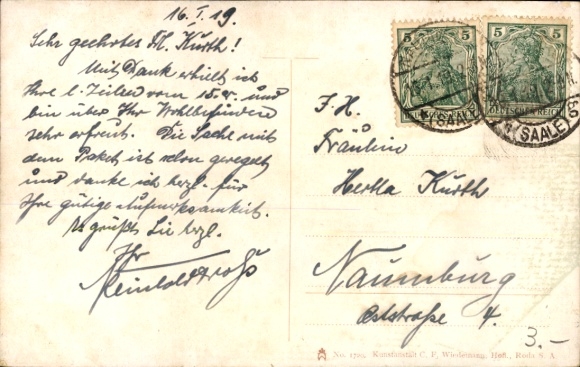 16. I. 19.
Sehr geehrtes Frl. Kurth!
Mit Dank erhielt ich
Ihre l. Zeilen vom 15. und
bin über Ihr Wohlbefinden
sehr erfreut. Die Sache mit
dem Paket ist schon geregelt
und danke ich herzl. für
Ihre gütige Aufmerksamkeit.
Es grüßt Sie herzl.
Ihr
Reinhold
5 5
5 5
DEUTSCHES REICH
(SAALE)
(SAALE)
Fräulein
Hertha Kurth
Naumburg
Oststraße 4.
3.-
No. Kunstanstalt C. F. Wiedemann, Hofl., Roda S. A.